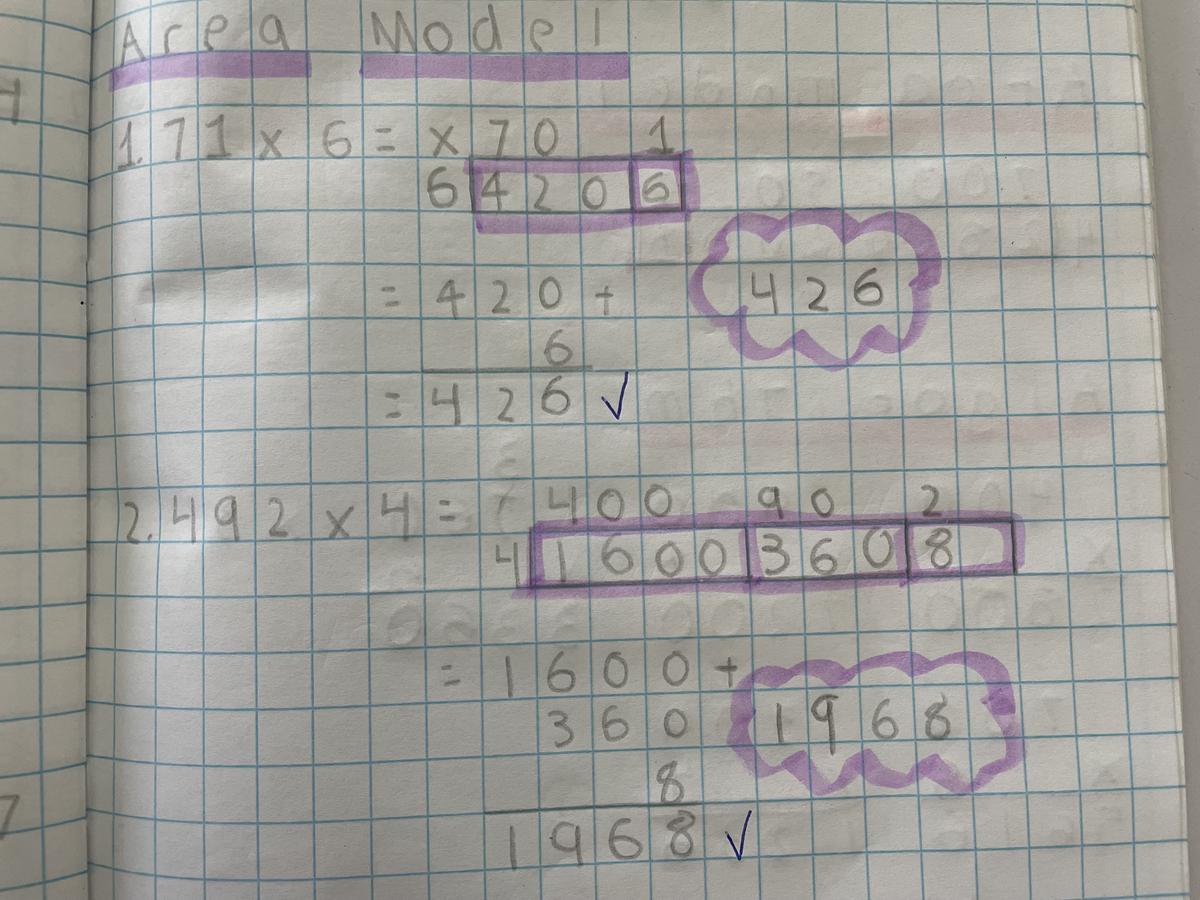 Area Model
1. 71 x 6 = x 70 1
6 420 6
= 420 +
426
6
= 426 ✓
2. 492 x 4 = 400 90 2
4 1600 360 8
= 1600 +
360
1968
8
1968 ✓